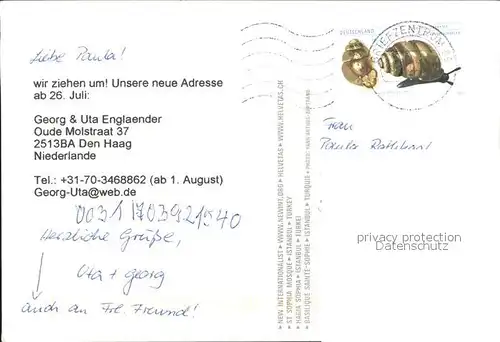 Liebe Paula!
wir ziehen um! Unsere neue Adresse
ab 26. Juli:
Georg & Uta Englaender
Oude Molstraat 37
2513BA Den Haag
Niederlande
Tel.: +31-70-3468862 (ab 1. August)
Georg-Uta@web.de
0031 703921940
Herzliche Grüße,
Uta + Georg
auch an Frl. Freund!
DEUTSCHLAND
BRIEFZENTRUM
Frau
Paula
privacy protection
Datenschutz
» NEW INTERNATIONALIST » WWW.NEWINT.ORG » HELVETAS » WWW.HELVETAS.CH
ST SOPHIA MOSQUE » ISTANBUL » TURKEY
HAGIA SOPHIA » ISTANBUL » TÜRKEI
» BASILIQUE SAINTE-SOPHIE » ISTANBUL » TURQUIE